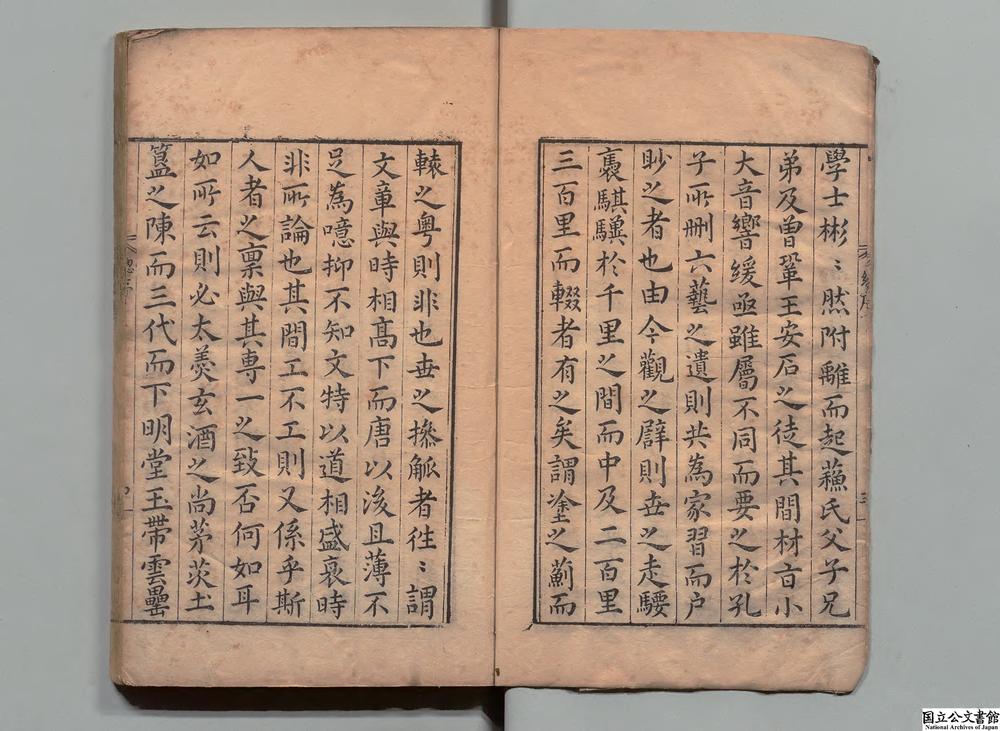 學士彬〻然附離而起蘓氏父子兄
弟及曾鞏王安石之徒其間材旨小
大音響緩亟雖屬不同而要之於孔
子所刪六藝之遺則共為家習而户
眇之者也由今觀之譬則世之走騕
褭騏驥於千里之間而中及二百里
三百里而輟者有之矣謂塗之薊而
轅之粤則非也世之摻觚者徃〻謂
文章與時相髙下而唐以後且薄不
足為噫抑不知文特以道相盛衰時
非所論也其間工不工則又係乎斯
人者之稟與其專一之致否何如耳
如所云則必太羹玄酒之尚茅茨土
簋之陳而三代而下明堂玉帶雲罍
總序
国立公文書館
National Archives of Japan